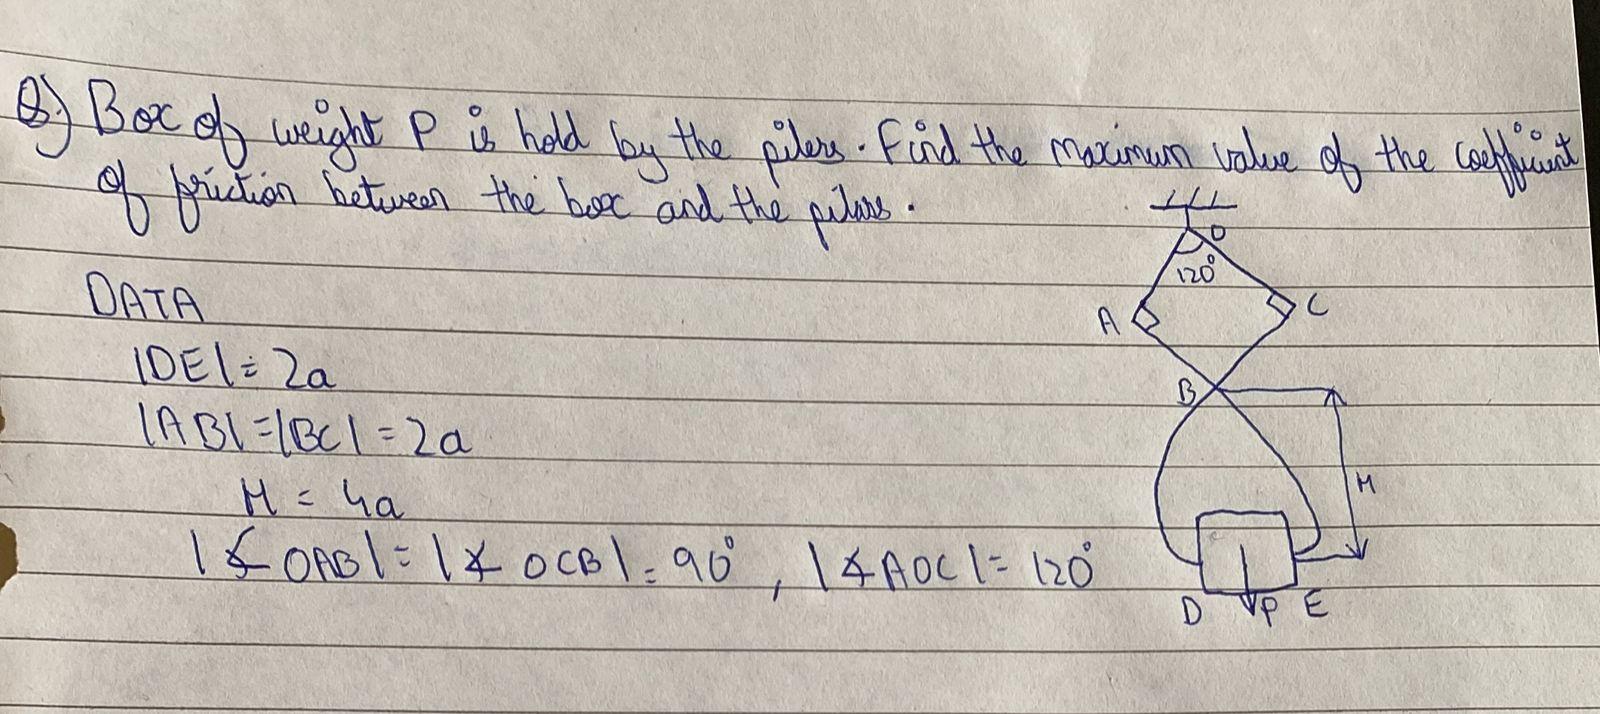 Q) Box of weight P is hold by the pilers. Find the maximum value of the coefficient
of friction between the box and the pilars.
O
120°
A
C
DATA
|DE| = 2a
|AB| = |BC| = 2a
B
H = 4a
H
|∡ OAB| = |∡ OCB| = 90°, |∡AOC| = 120°
D P E